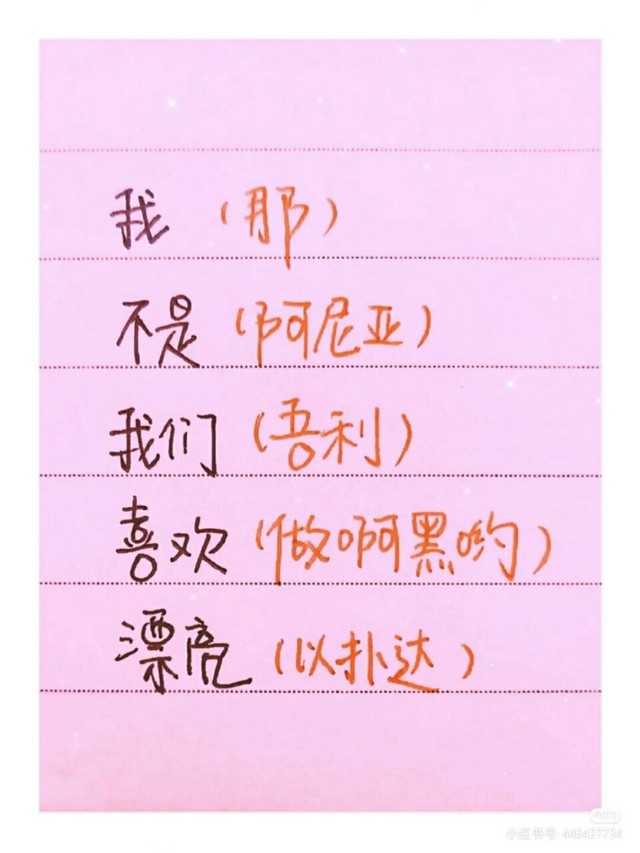 我（那）
不是（阿尼亚）
我们（吾利）
喜欢（做啊黑哟）
漂亮（以扑达）
小红书
小红书号: 448427734